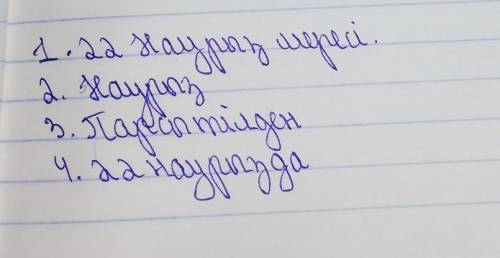 1. 22 Наурыз мерекесі.
2. Наурыз
3. Парсы тілден
4. 22 наурызда